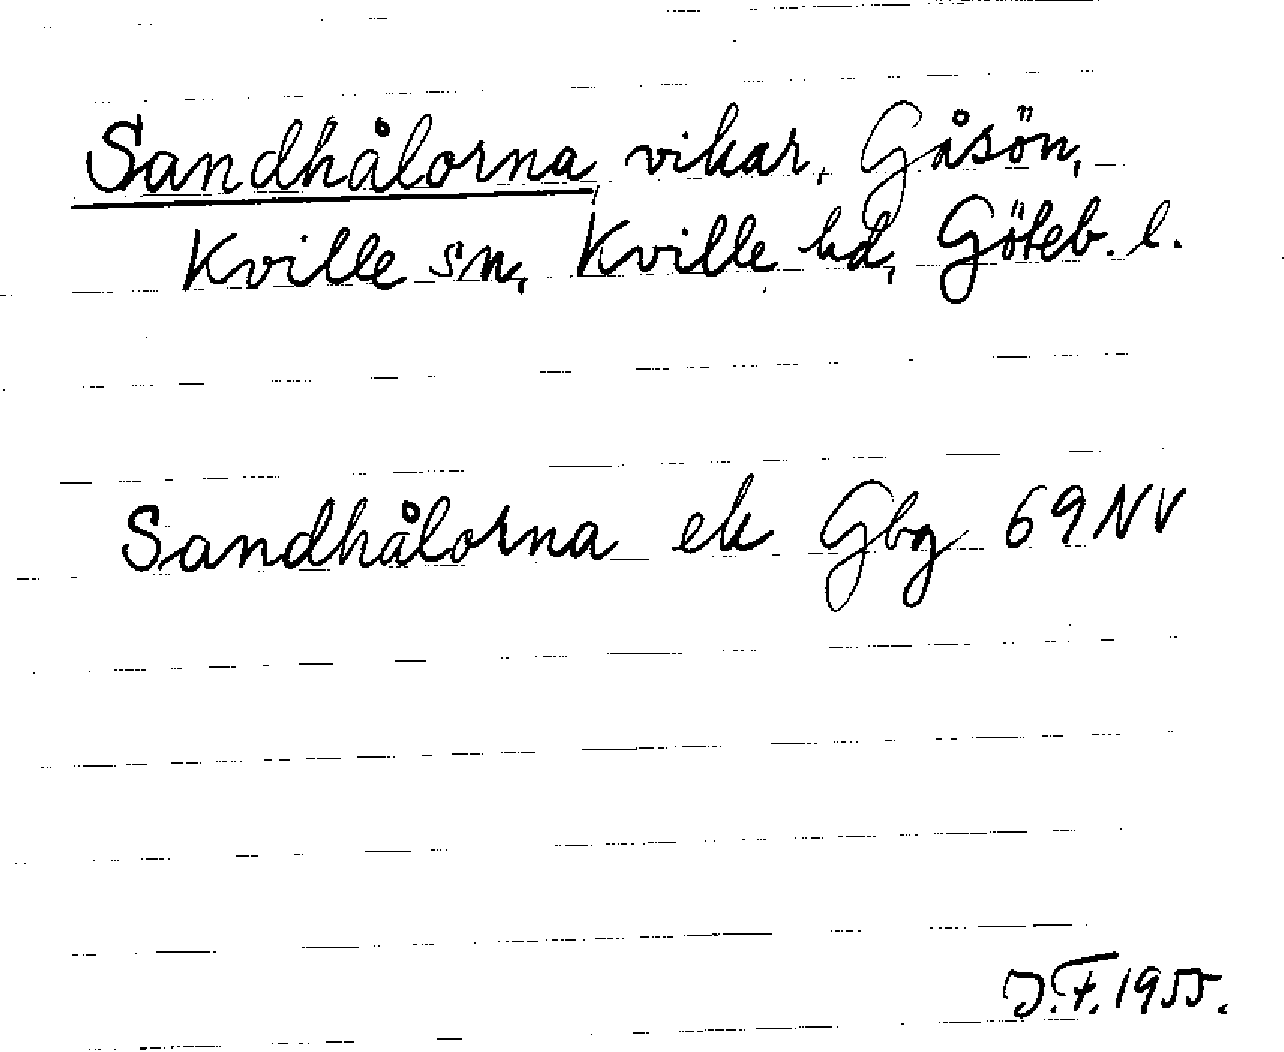 Sandhålorna, vikar, Gåsön,
Kville sn, Kville hd, Göteb. l.
Sandhålorna ek Gbg 69 NV
J.F. 1955.